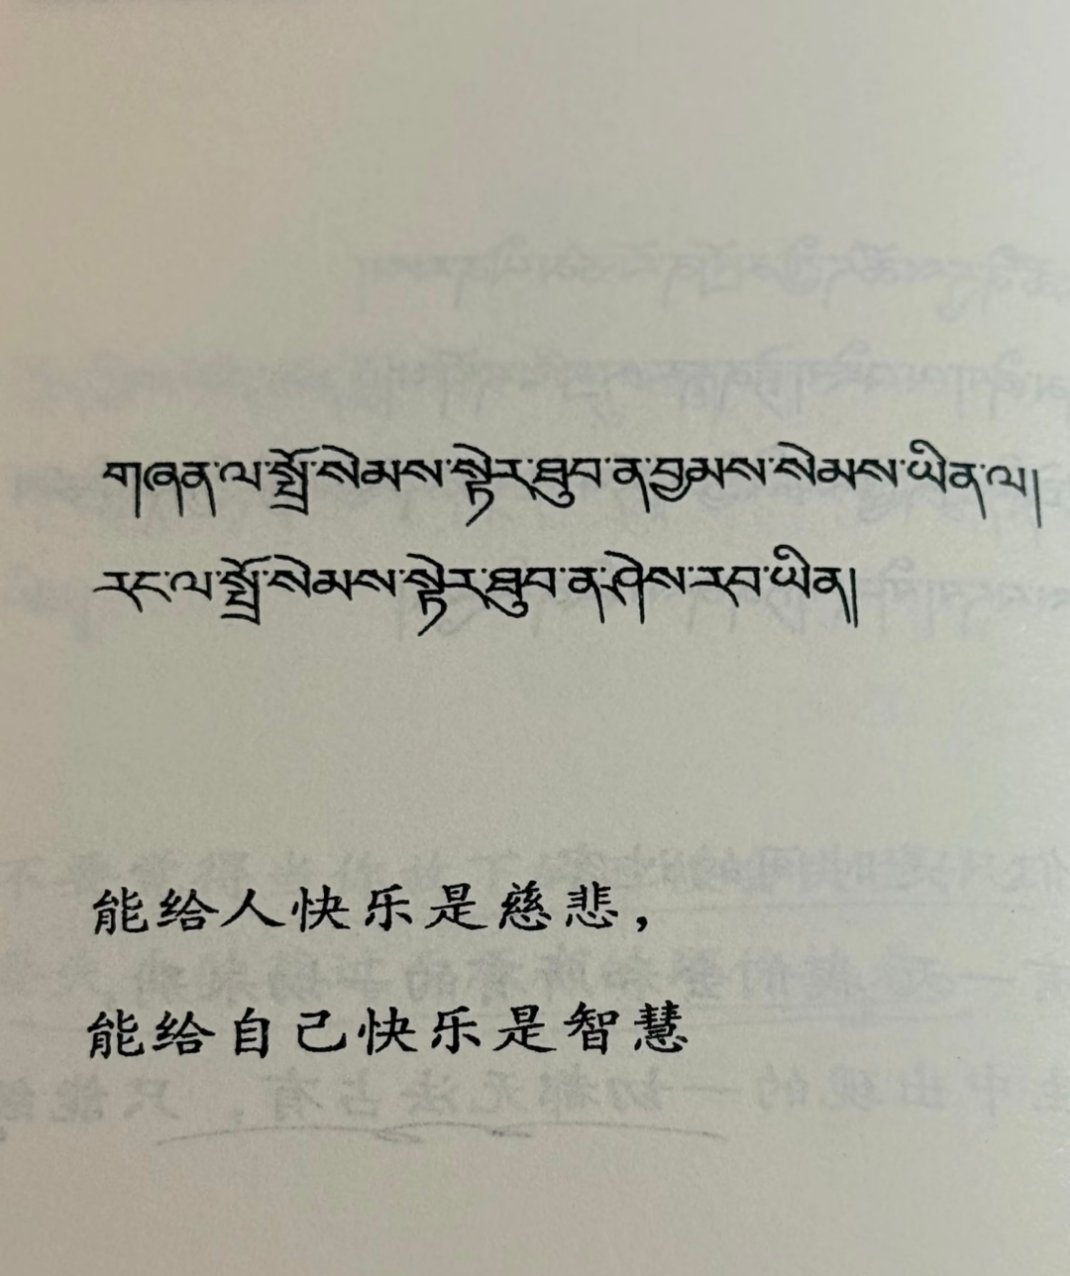 གཞན་ལ་སྤྲོ་སེམས་སྟེར་ཐུབ་ན་བྱམས་སེམས་ཡིན་ལ།
རང་ལ་སྤྲོ་སེམས་སྟེར་ཐུབ་ན་ཤེས་རབ་ཡིན།
能给人快乐是慈悲，
能给自己快乐是智慧